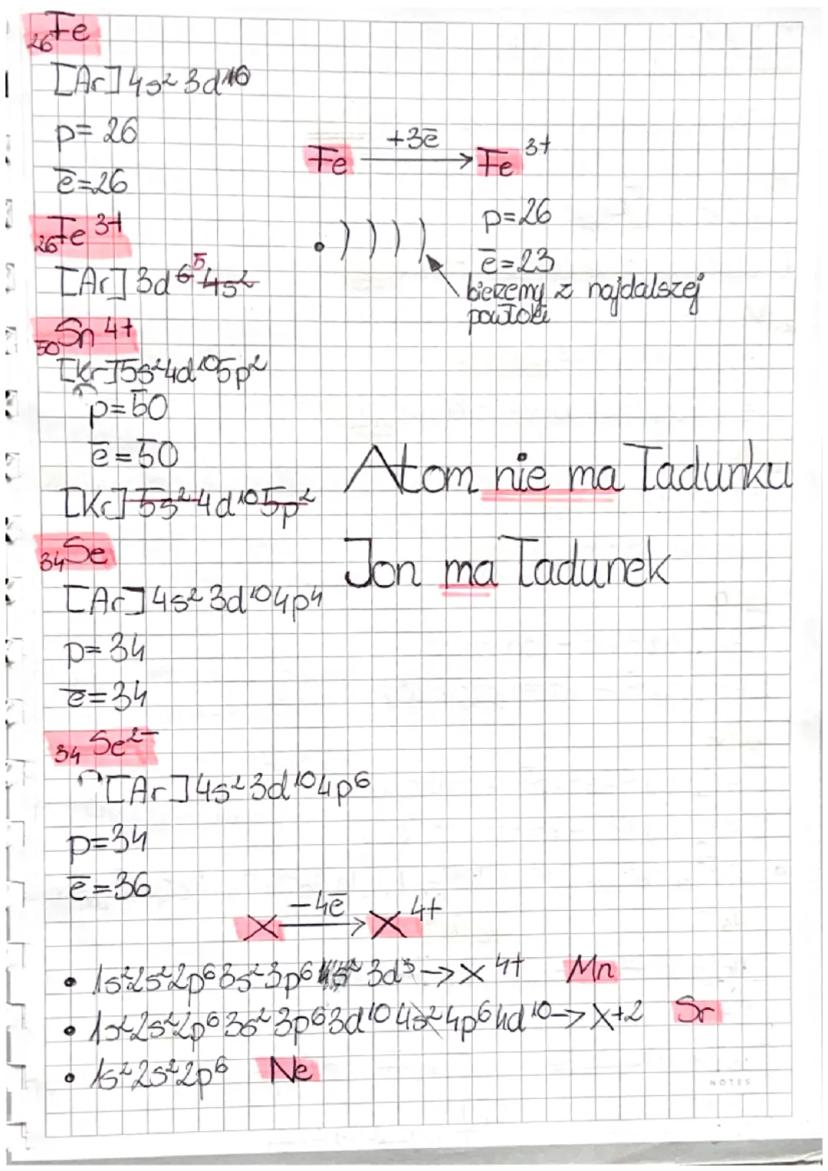 ₂₆Fe
[Ar] 4s² 3d⁶
p= 26
ē=26
Fe +3ē → Fe³⁺
p=26
ē=23
bierzemy z najdalszej
powłoki
₂₆Fe³⁺
[Ar] 3d⁶ ⁵ 4s²
₅₀Sn⁴⁺
[Kr] 5s² 4d¹⁰ 5p²
p=50
ē=50
[Kr] 5s² 4d¹⁰ 5p²
Atom nie ma ładunku
Jon ma ładunek
₃₄Se
[Ar] 4s² 3d¹⁰ 4p⁴
p= 34
ē=34
₃₄Se²⁻
[Ar] 4s² 3d¹⁰ 4p⁶
p=34
ē=36
X −4ē → X⁴⁺
• 1s² 2s² 2p⁶ 3s² 3p⁶ 3d³ → X⁴⁺ Mn
• 1s² 2s² 2p⁶ 3s² 3p⁶ 3d¹⁰ 4s² 4p⁶ 4d¹⁰ → X+2 Sr
• 1s² 2s² 2p⁶ Ne
NOTES